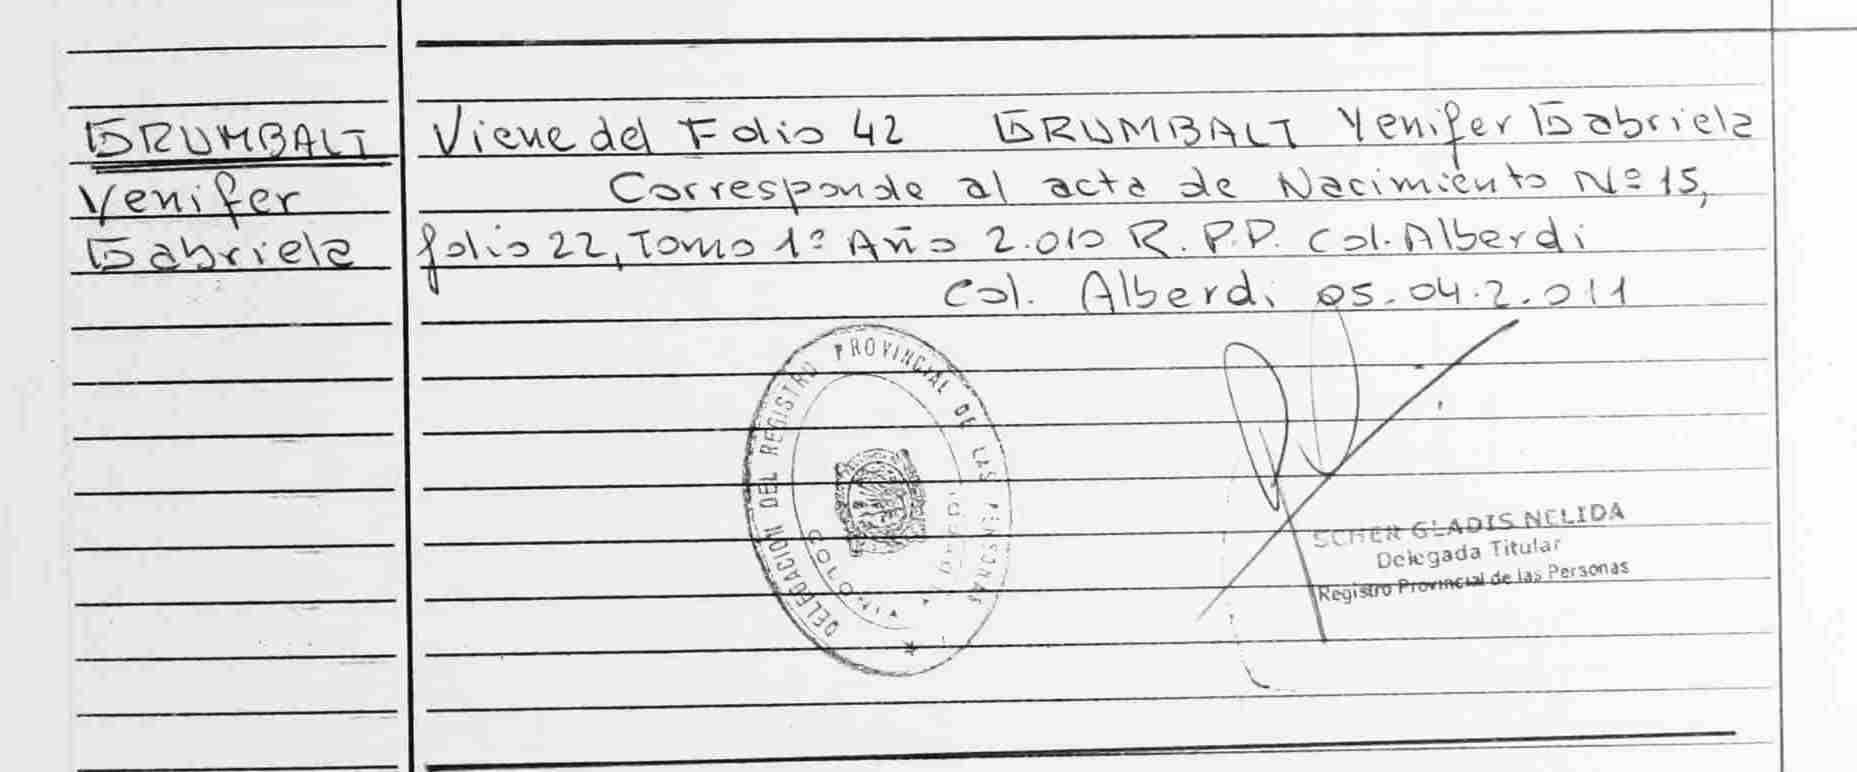 GRUMBALT
Yenifer
Gabriela
Viene del Folio 42 GRUMBALT Yenifer Gabriela
Corresponde al acta de Nacimiento Nº 15,
folio 22, Tomo 1º Año 2.010 R.P.P. Col. Alberdi
Col. Alberdi 05.04.2.011
DELEGACION DEL REGISTRO PROVINCIAL DE LAS PERSONAS
COLONIA ALBERDI
SCHER GLADIS NELIDA
Delegada Titular
Registro Provincial de las Personas